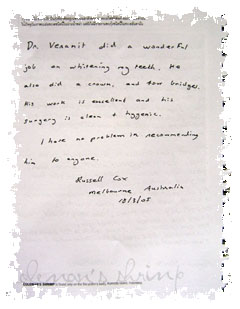 Dr. Veeanit did a wonderful
job on whitening my teeth. He
also did a crown, and four bridges.
His work is excellent and his
surgery is clean & hygenic.
I have no problem in recommending
him to anyone.
Russell Cox
Melbourne Australia
18/8/05